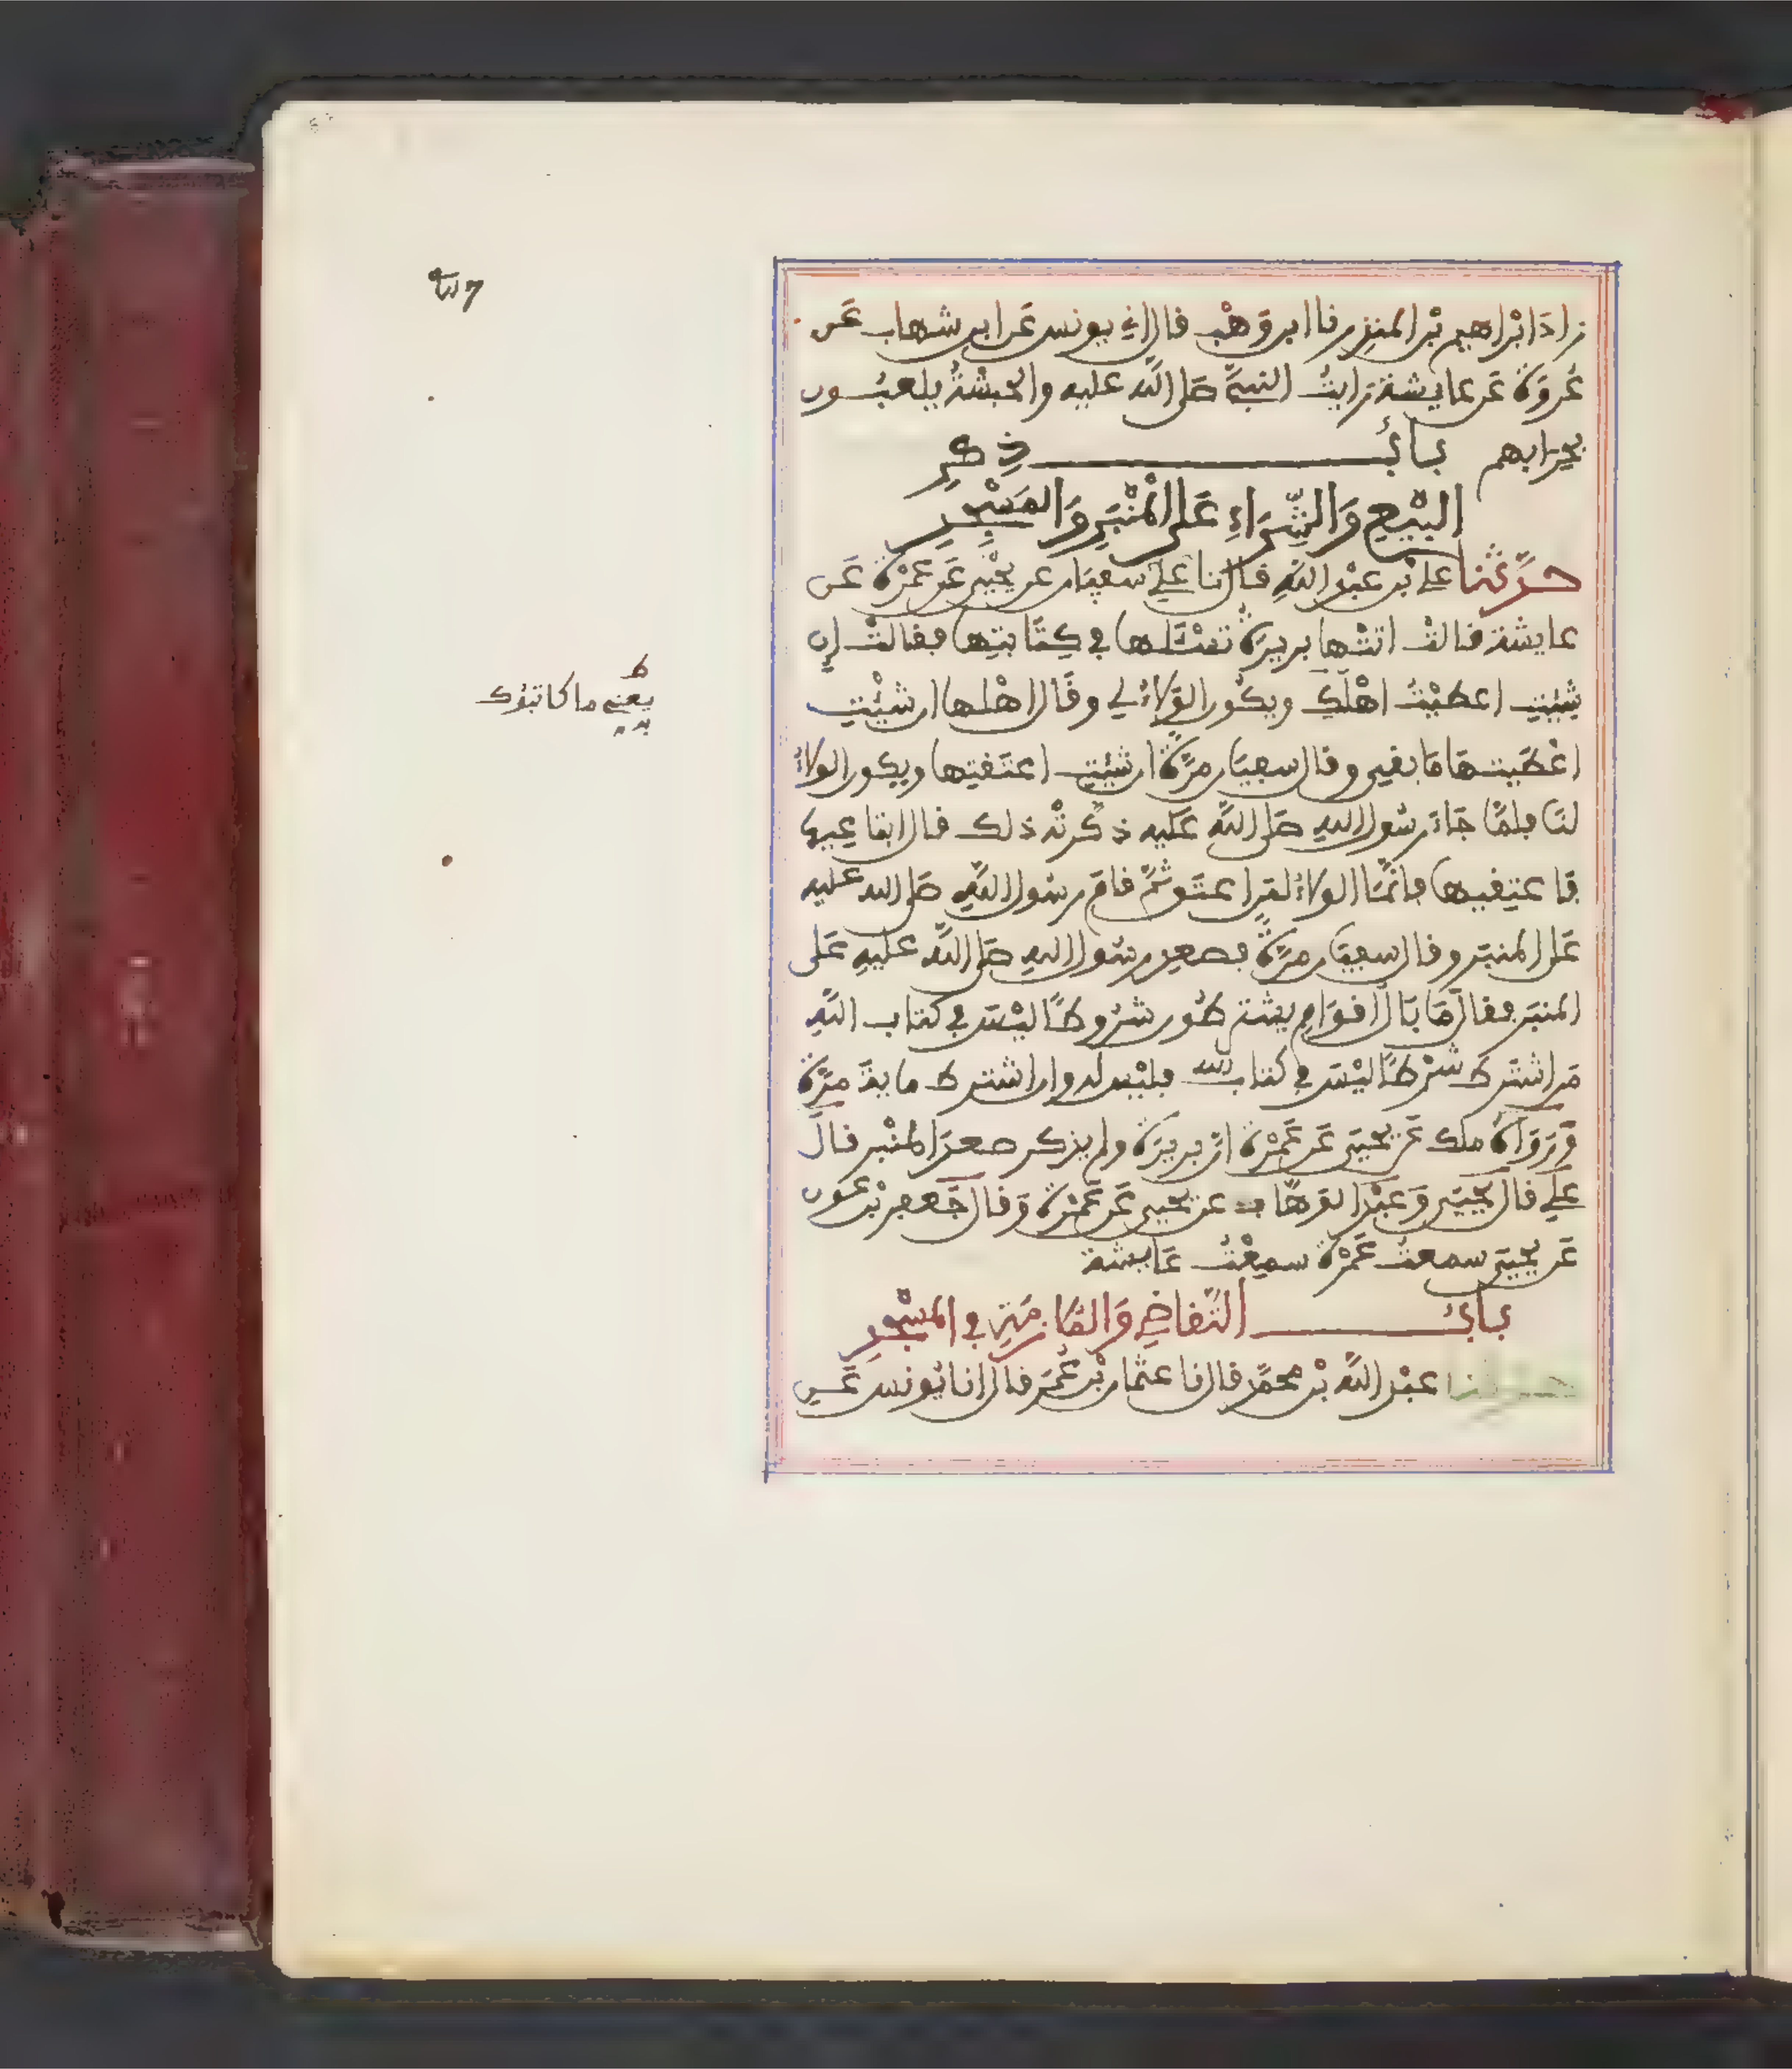 زادَ ابْراهيم بْن المنذِر نا ابن وَهْب قال اني يونس عَن ابن شهاب عَن
عُروَة عَن عايشة رايتُ النبيَّ صَلى اللَّه عليه والحَبشةُ يلعبُون
بحِرابهم بابُ ذِكرِ
البَيْعِ وَالشِّرَاءِ عَلى المِنْبَرِ وَالمَسْجِدِ
حدَّثنا علي بْن عبْد اللَّهِ قال نا سفيان عن يحْيَى عَن عَمْرَة عَن
عايشة قالتْ اتتْها بريرَةُ تسْئَلها في كِتَابتِها فقالتْ إن
شِئتِ اعطيْتُ اهْلَكِ ويكُون الوَلاءُ لي وقَال اهْلها ان شئْتِ
اعْطَيتِهَا مَا بقي وقال سفيَان مرَّةً ان شئتِ اعتَقتِها ويكون الولاءُ
لنَا فلمَّا جَاءَ رسُول اللهِ صَلى اللَّه عَليه ذكرتْه ذلك فقال ابتاعِيها
فَاعتِقيها فانَّما الولاءُ لمَن اعتَق ثمَّ قامَ رسُول اللَّهِ صَلى الله عليه
عَلى المنبَر وقال سفيَان مرَّةً فصعِد رسُول اللهِ صَلى اللَّه عليهِ عَلى
المنبَر فقال مَا بَال اقوَامٍ يشتَرطُون شرُوطًا ليْسَ في كتاب اللَّهِ
مَن اشتَرطَ شرْطًا ليْسَ في كتاب الله فليْس له وان اشترط ماية مرَّة
وَرَوَاهُ ملك عَن يحيَى عَن عَمْرَة انَّ بريرَة ولم يذكر صعدَ المنْبر قالَ
علي قال يحيَى وَعبْد الوَهَّاب عن يحيى عَن عَمْرَة وَقال جَعفر بْن عَون
عَن يحيَى سمعتُ عَمْرَة سمِعْتُ عَايشة
بابُ التَّقاضِي وَالمُلازمَةِ في المسْجدِ
حدثنا عبْد اللَّه بْن محمَّد قال نا عثمان بْن عُمَر قال انا يُونس عَن
ط
يعْني ما كاتبُوك
به